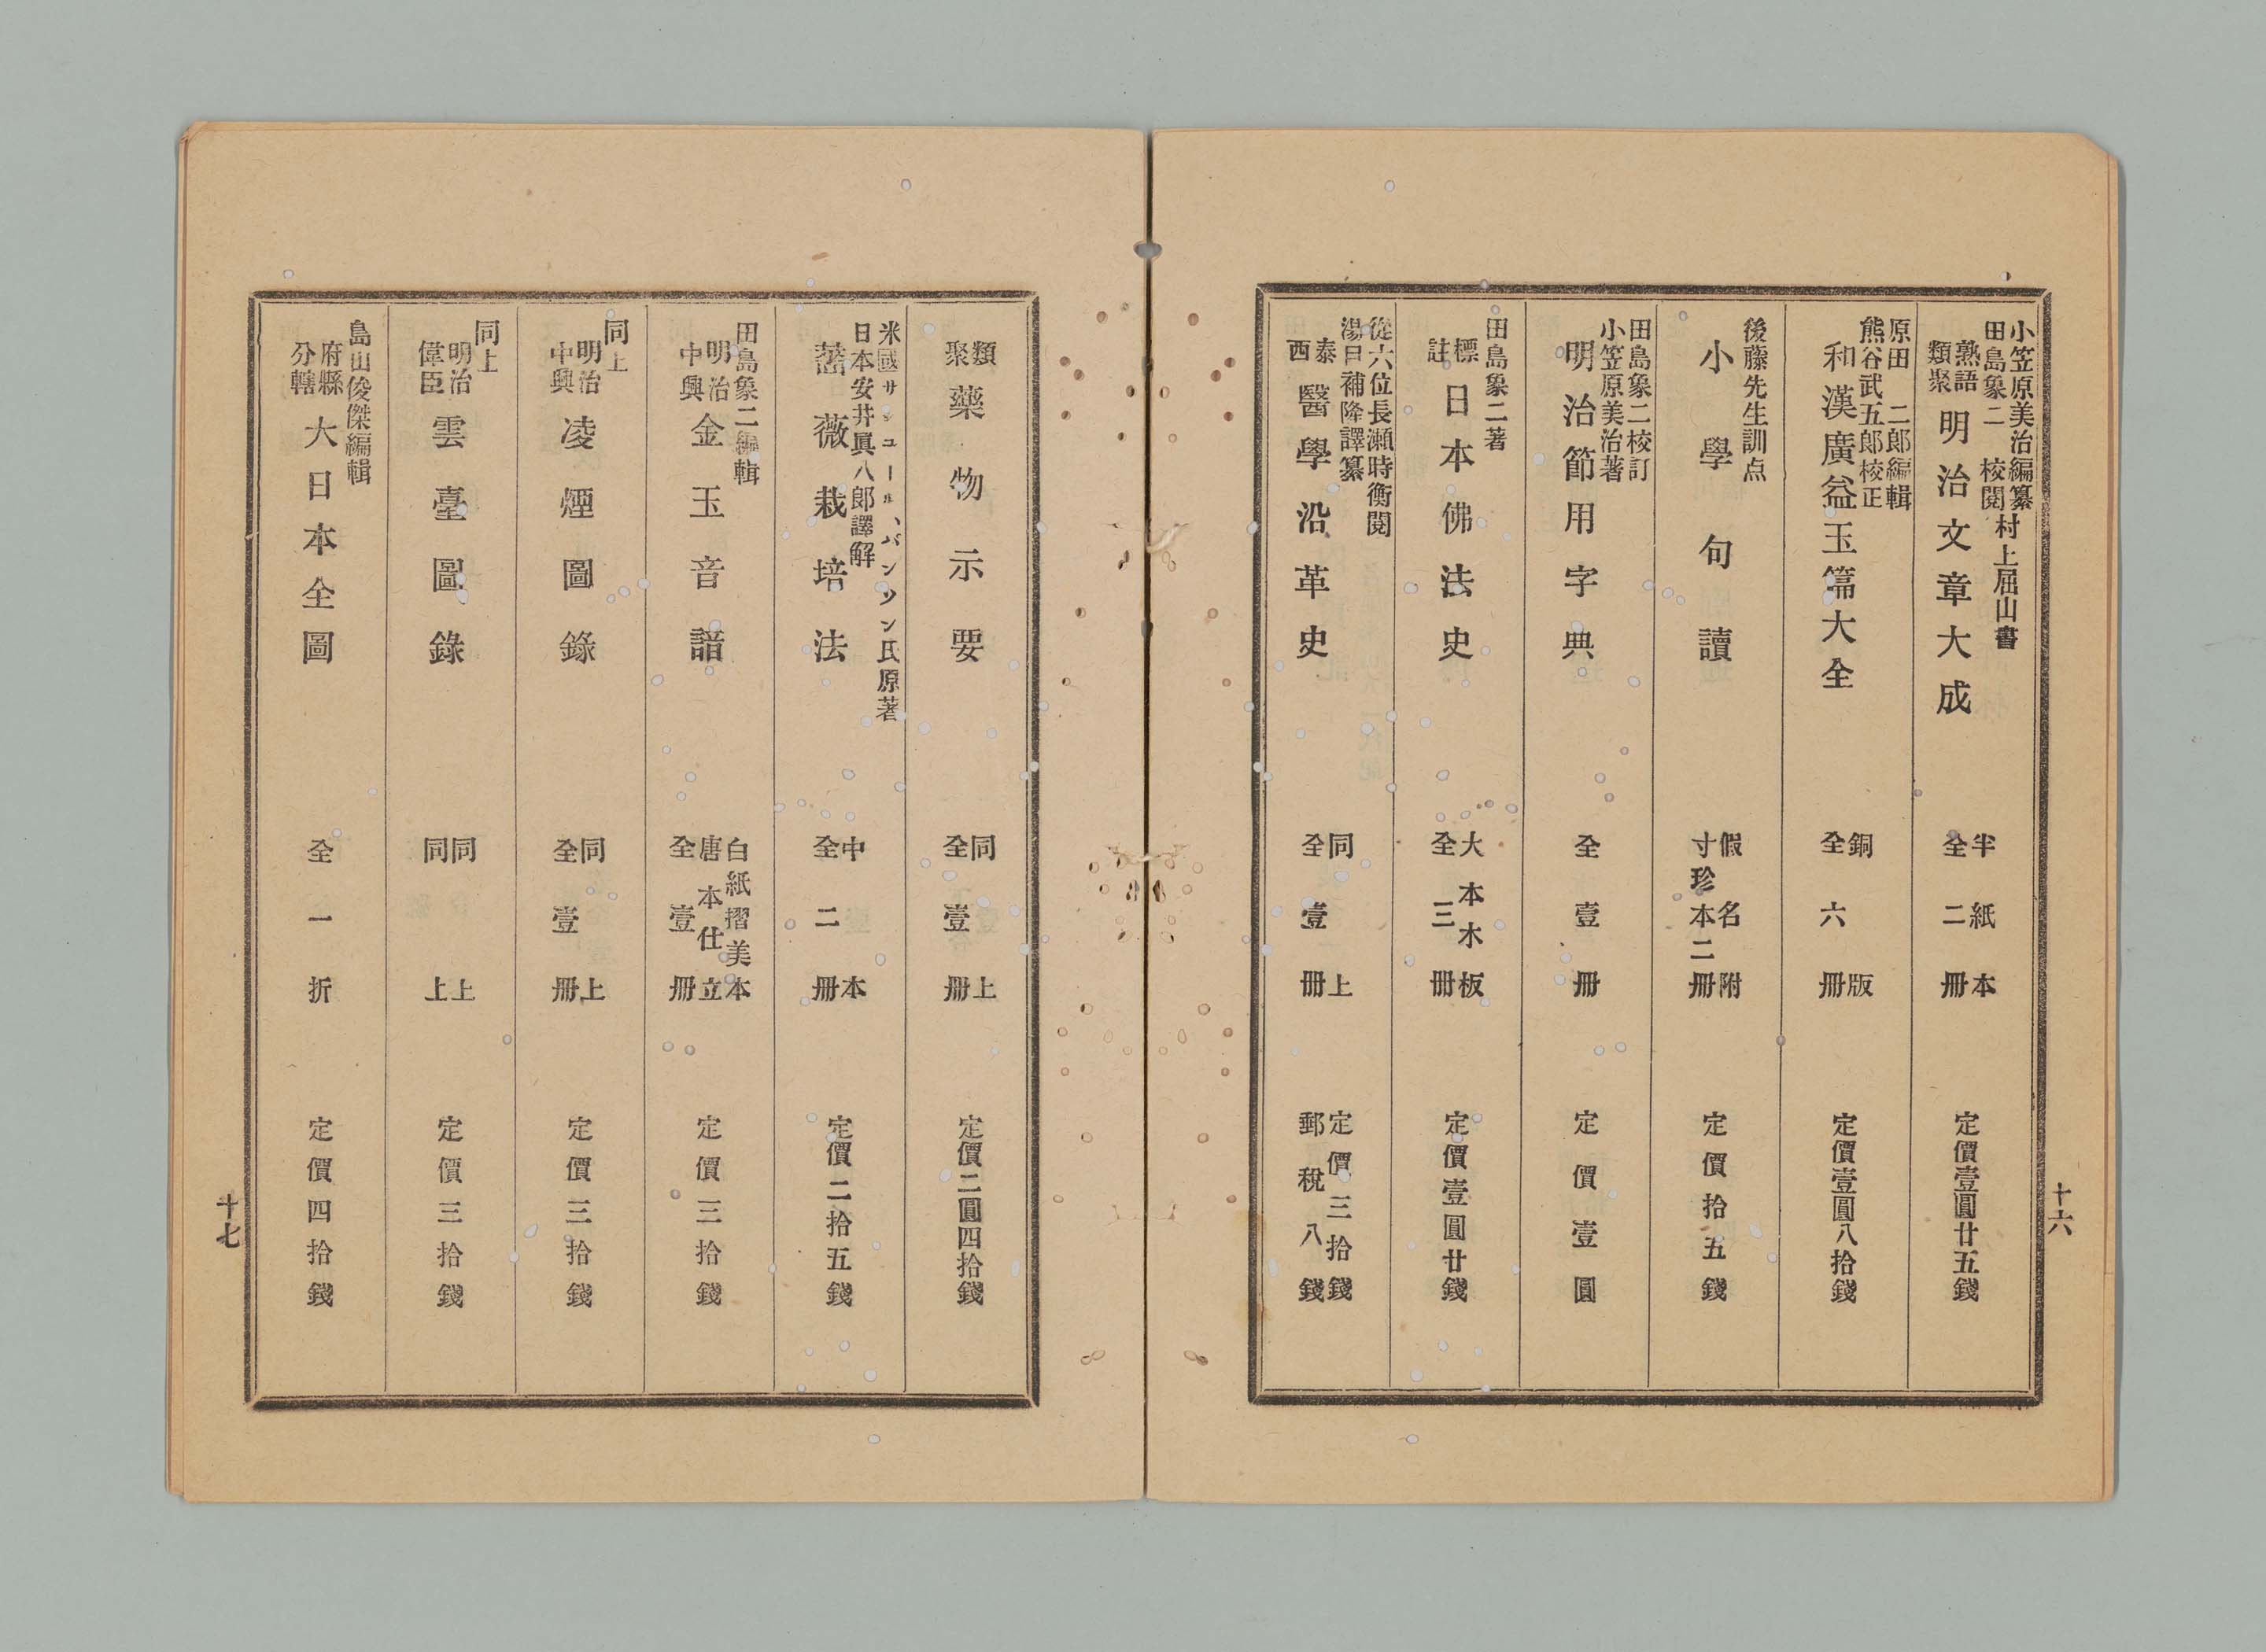 小笠原美治編纂
田島象二　校閲
村上屈山書
熟語
類聚
明治文章大成
半紙本
全二冊
定價壹圓廿五錢
原田　二郎編輯
熊谷武五郎校正
和漢廣益玉篇大全
銅版
全六冊
定價壹圓八拾錢
後藤先生訓点
小學句讀
假名附
寸珍本二冊
定價拾五錢
田島象二校訂
小笠原美治著
明治節用字典
全壹冊
定價壹圓
田島象二著
標
註
日本佛法史
大本木板
全三冊
定價壹圓廿錢
從六位長瀬時衡閲
湯日補隆譯纂
泰
西
醫學沿革史
同上
全壹冊
定價三拾錢
郵稅八錢
十六
類
聚
藥物示要
同上
全壹冊
定價二圓四拾錢
米國サミユールバンソン氏原著
日本安井眞八郎譯解
薔薇栽培法
中本
全二冊
定價二拾五錢
田島象二編輯
明治
中興
金玉音譜
白紙摺美本
唐本仕立
全壹冊
定價三拾錢
同上
明治
中興
凌煙圖錄
同上
全壹冊
定價三拾錢
同上
明治
偉臣
雲臺圖錄
同上
同上
定價三拾錢
島山俊傑編輯
府縣
分轄
大日本全圖
全一折
定價四拾錢
十七